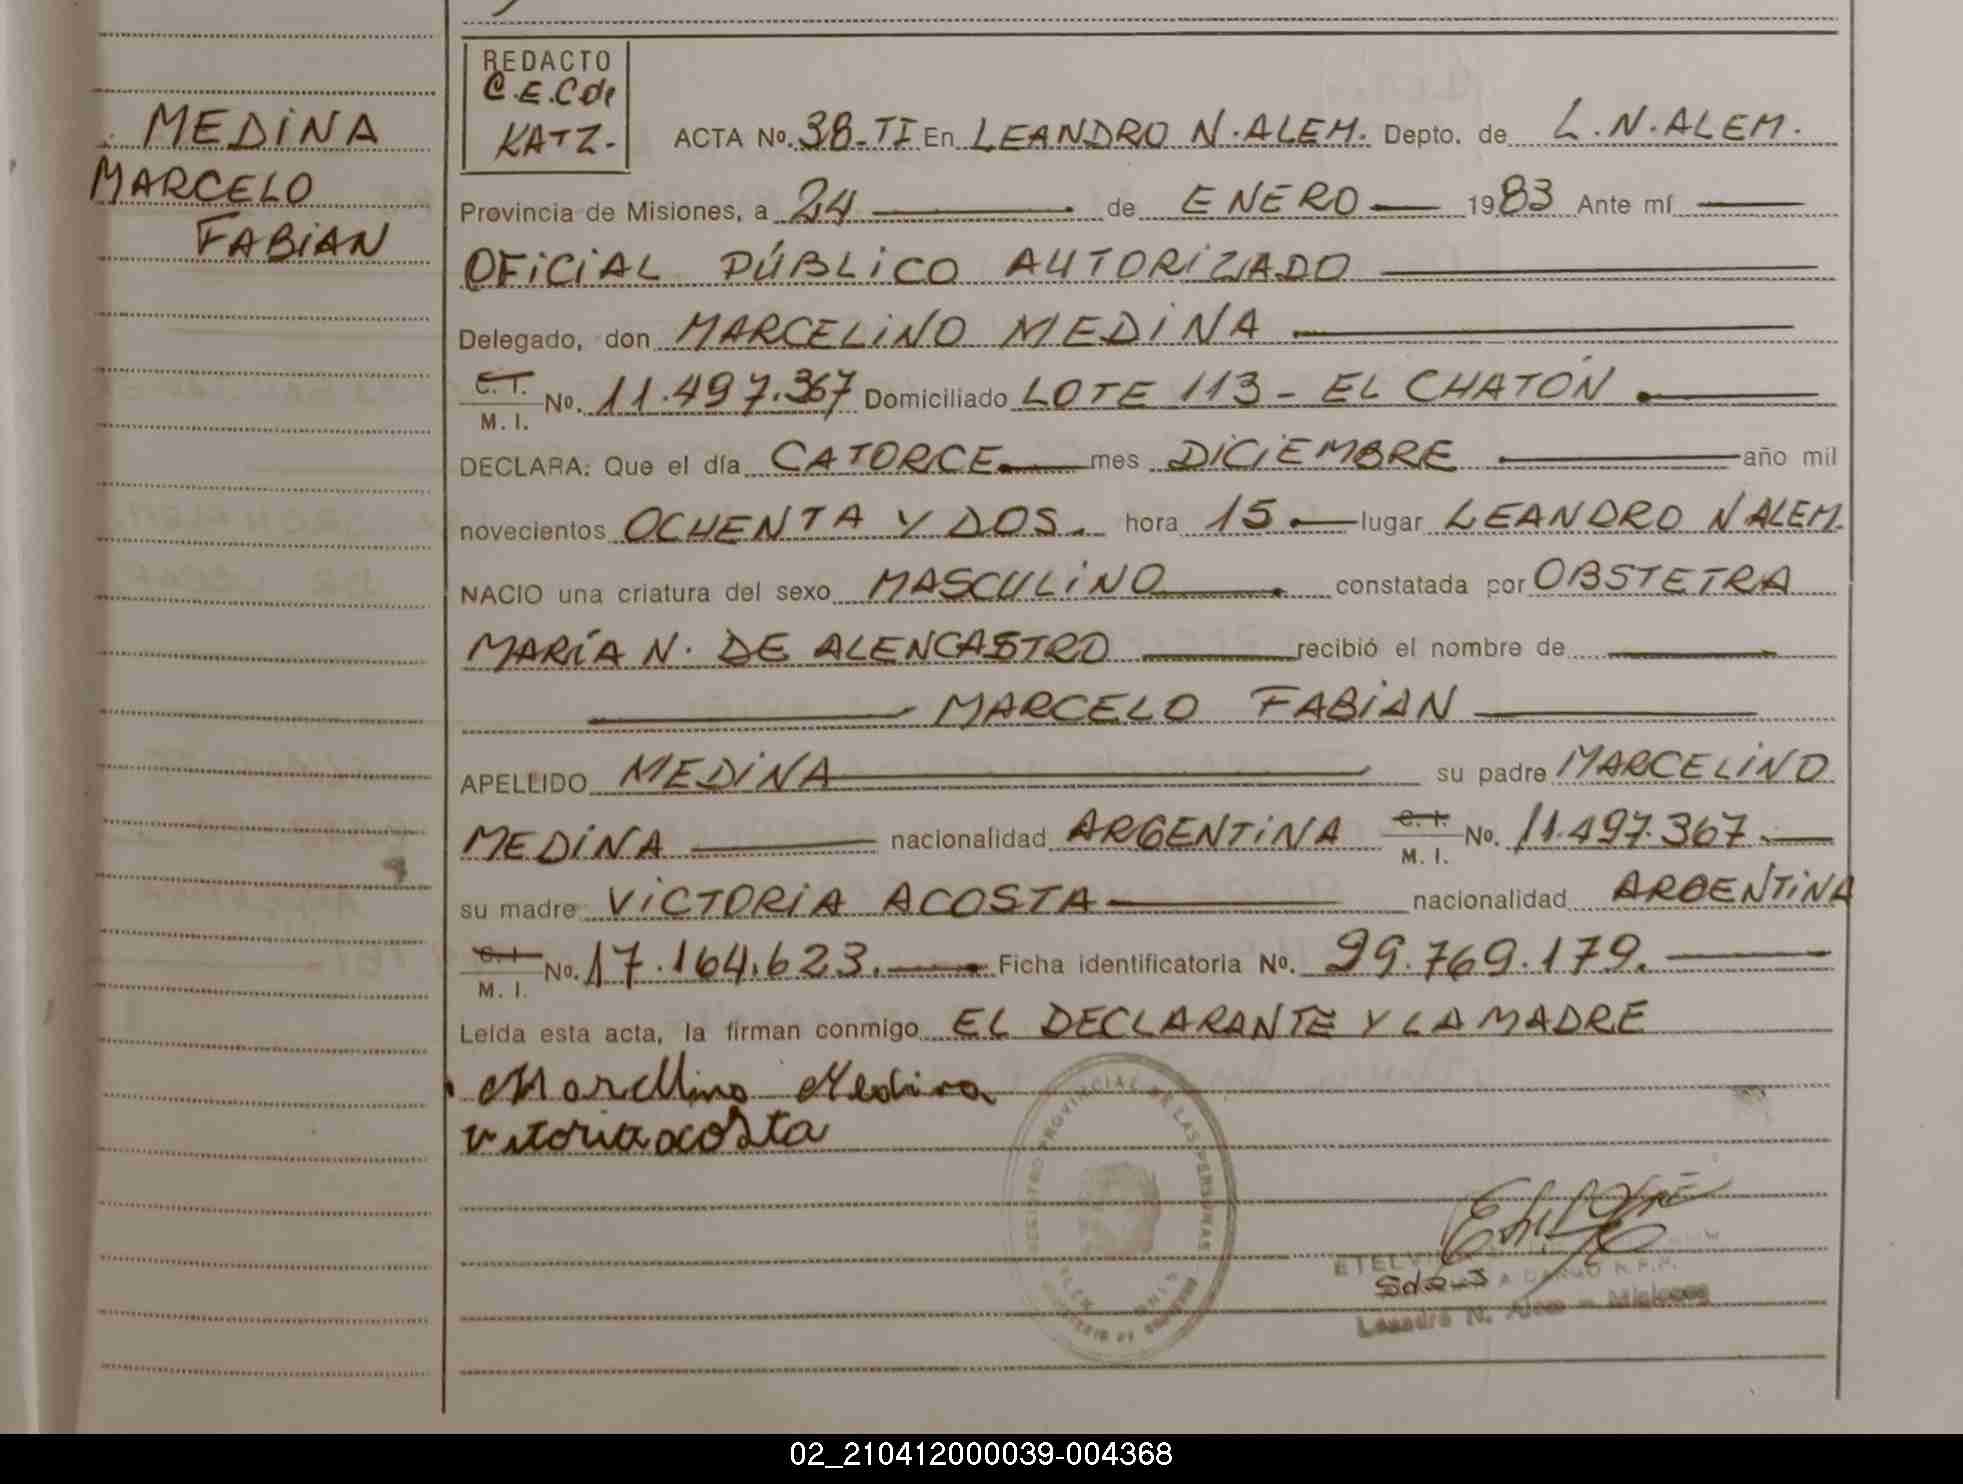 MEDINA
MARCELO
FABIAN
REDACTO
C.E.C de
KATZ.-
ACTA No. 38-TI En LEANDRO N. ALEM. Depto. de L. N. ALEM.
Provincia de Misiones, a 24 de ENERO 1983 Ante mí
OFICIAL PÚBLICO AUTORIZADO
Delegado, don MARCELINO MEDINA
C. I. M. I. No. 11.497.367 Domiciliado LOTE 113 - EL CHATÓN
DECLARA: Que el día CATORCE mes DICIEMBRE año mil
novecientos OCHENTA Y DOS. hora 15 lugar LEANDRO N ALEM.
NACIO una criatura del sexo MASCULINO constatada por OBSTETRA
MARÍA N. DE ALENCASTRO recibió el nombre de
MARCELO FABIAN
APELLIDO MEDINA su padre MARCELINO
MEDINA nacionalidad ARGENTINA C. I. M. I. No. 11.497.367.
su madre VICTORIA ACOSTA nacionalidad ARGENTINA
C. I. M. I. No. 17.164.623. Ficha identificatoria No. 29.769.179.
Leída esta acta, la firman conmigo EL DECLARANTE Y LA MADRE
Marcelino Medina
vitoria acosta
REGISTRO PROVINCIAL DE LAS PERSONAS
Leandro N. Alem - Misiones
02_210412000039-004368